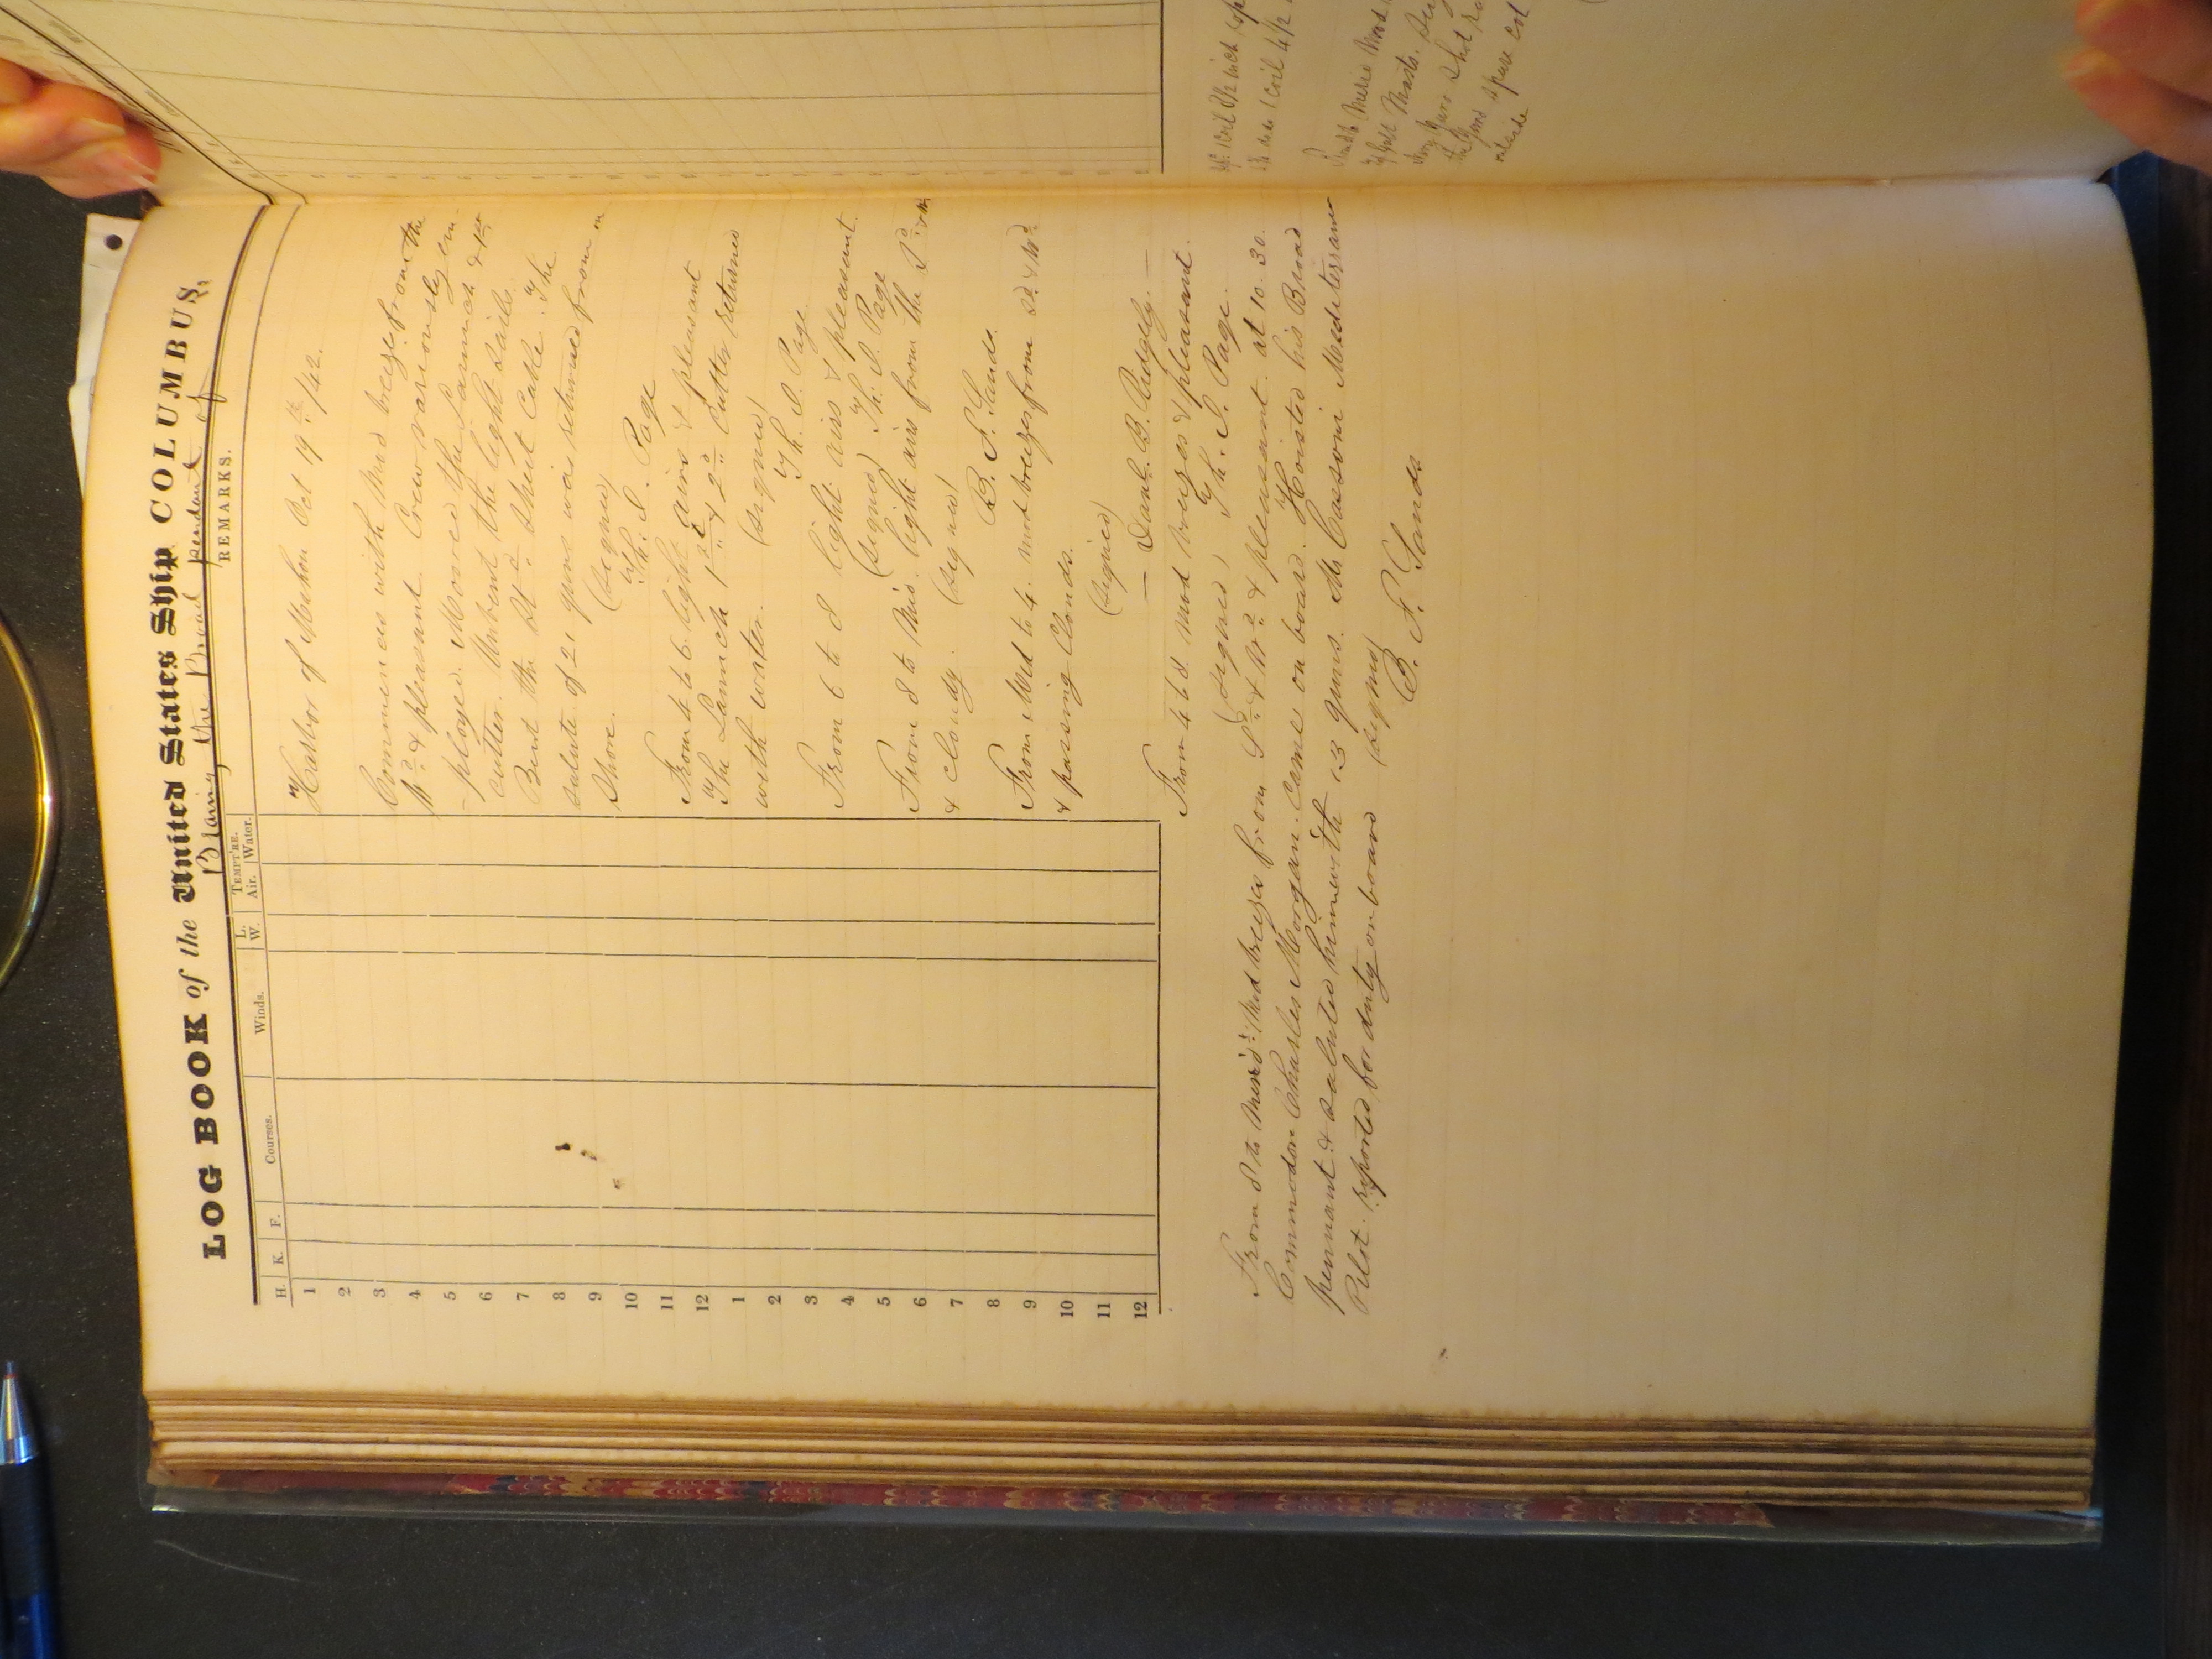 LOG BOOK of the United States Ship COLUMBUS,
Bearing the Broad pendant of
H. K. F. Courses. Winds. L. W. TEMPT'RE. Air. Water. REMARKS.
1
2
3
4
5
6
7
8
9
10
11
12
1
2
3
4
5
6
7
8
9
10
11
12
Harbor of Mahon Oct 19th /42.
Commences with Mod breeze from the
& pleasant. Crew variously em-
-ployed. Moored the Launch & 1st
cutter. Unbent the light sails.
Bent the St'd Sheet Cable. The
salute of 21 guns was returned from on
Shore. (signed)
Th. J. Page
From 4 to 6 light airs & pleasant
The Launch 1st & 2d Cutter returned
with water. (signed)
Th. J. Page
From 6 to 8 light airs & pleasant.
(signed) Th. J. Page
From 8 to Mid. light airs from the
& cloudy. (signed)
B. F. Sands.
From Mid to 4. mod breezes from
& passing Clouds.
(signed)
— Danl. B. Ridgely. —
From 4 to 8 mod breezes & pleasant.
(signed) Th. J. Page.
From 8 to Merid: Mod breezes from S'd & W'd & pleasant. at 10.30.
Commodore Charles Morgan. Came on board. Hoisted his Broad
pennant & saluted him with 13 guns. Mr Cassoni Mediterranean
Pilot. reported for duty on board (signed)
B. F. Sands
1 coil 3½ inch
1 coil 4½
Masts.
guns shot
spare